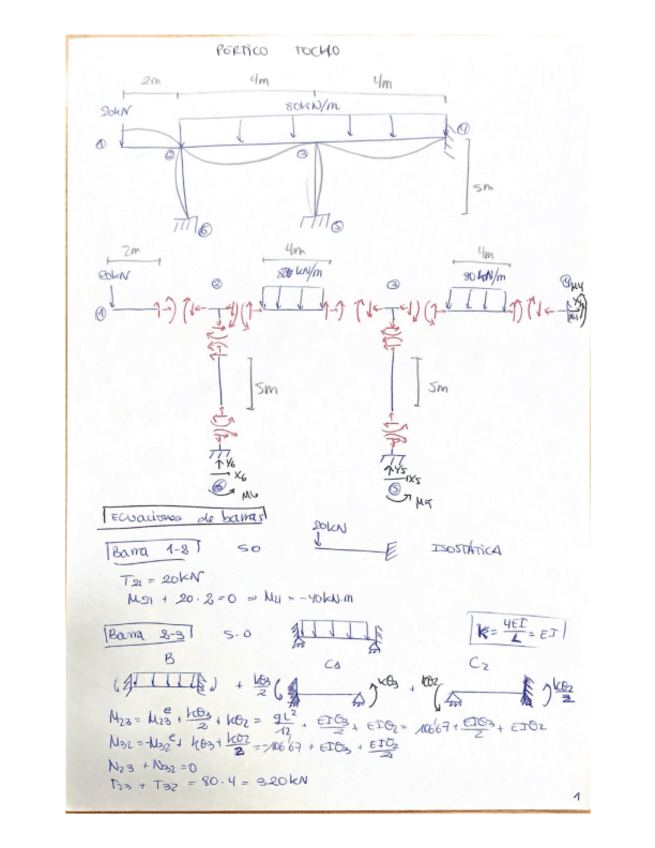 PÓRTICO TOCHO
2m 4m 4m
20kN 80kN/m
1 2 3 4
5m
6 5
2m 4m 4m
20kN 80kN/m 80kN/m
1 2 3 4 M4
X4
5m 5m
Y6 Y5
X6 X5
6 M6 5 M5
Ecuaciones de barras
20kN
Barra 1-2 SO ISOSTÁTICA
T21 = 20kN
M21 + 20·2=0 ⇒ M21 = -40kN·m
Barra 2-3 S.O K = 4EI/L = EI
B C1 C2
+ kθ3/2 kθ3 + kθ2 kθ2/2
M23 = M23^e + kθ3/2 + kθ2 = qL²/12 + EIθ3/2 + EIθ2 = 106'67 + EIθ3/2 + EIθ2
M32 = -M32^e + kθ3 + kθ2/2 = -106'67 + EIθ3 + EIθ2/2
N23 + N32 = 0
T23 + T32 = 80·4 = 320kN
1